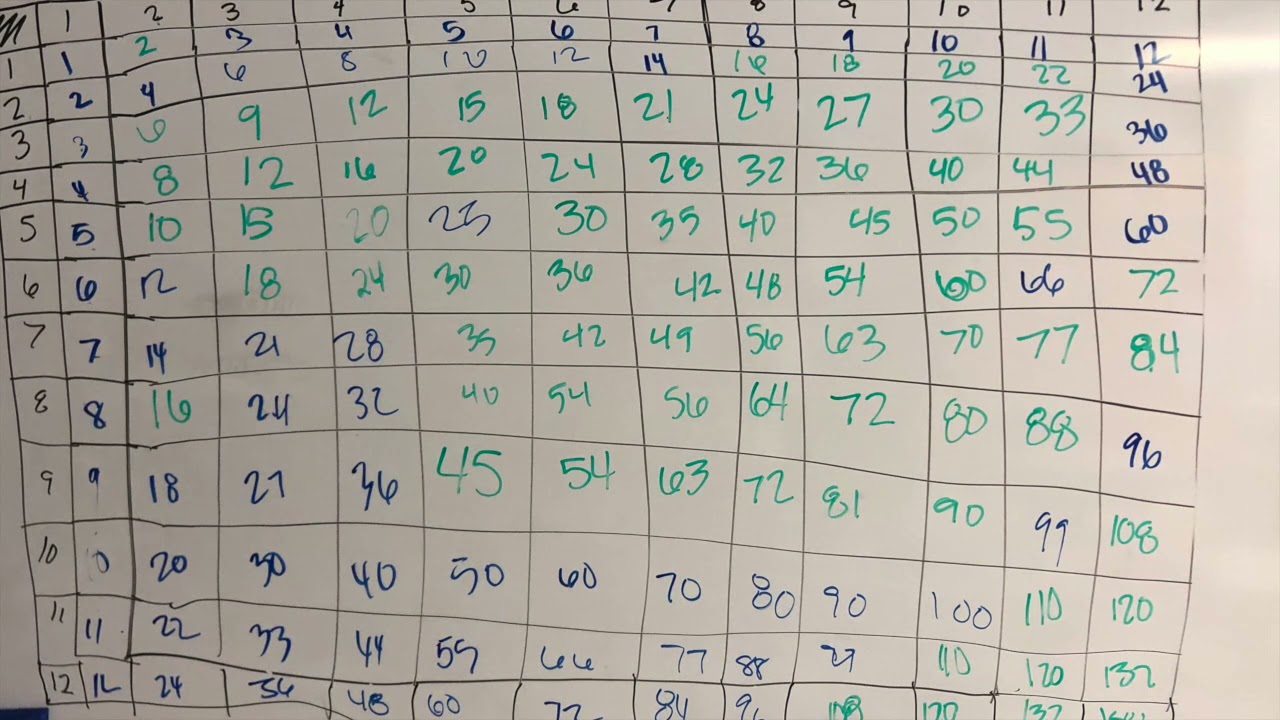 1 2 3 4 5 6 7 8 9 10 11 12
1 1 2 3 4 5 6 7 8 9 10 11 12
2 2 4 6 8 10 12 14 16 18 20 22 24
3 3 6 9 12 15 18 21 24 27 30 33 36
4 4 8 12 16 20 24 28 32 36 40 44 48
5 5 10 15 20 25 30 35 40 45 50 55 60
6 6 12 18 24 30 36 42 48 54 60 66 72
7 7 14 21 28 35 42 49 56 63 70 77 84
8 8 16 24 32 40 54 56 64 72 80 88 96
9 9 18 27 36 45 54 63 72 81 90 99 108
10 10 20 30 40 50 60 70 80 90 100 110 120
11 11 22 33 44 55 66 77 88 27 110 120 132
12 12 24 36 48 60 72 84 96 108 120 132